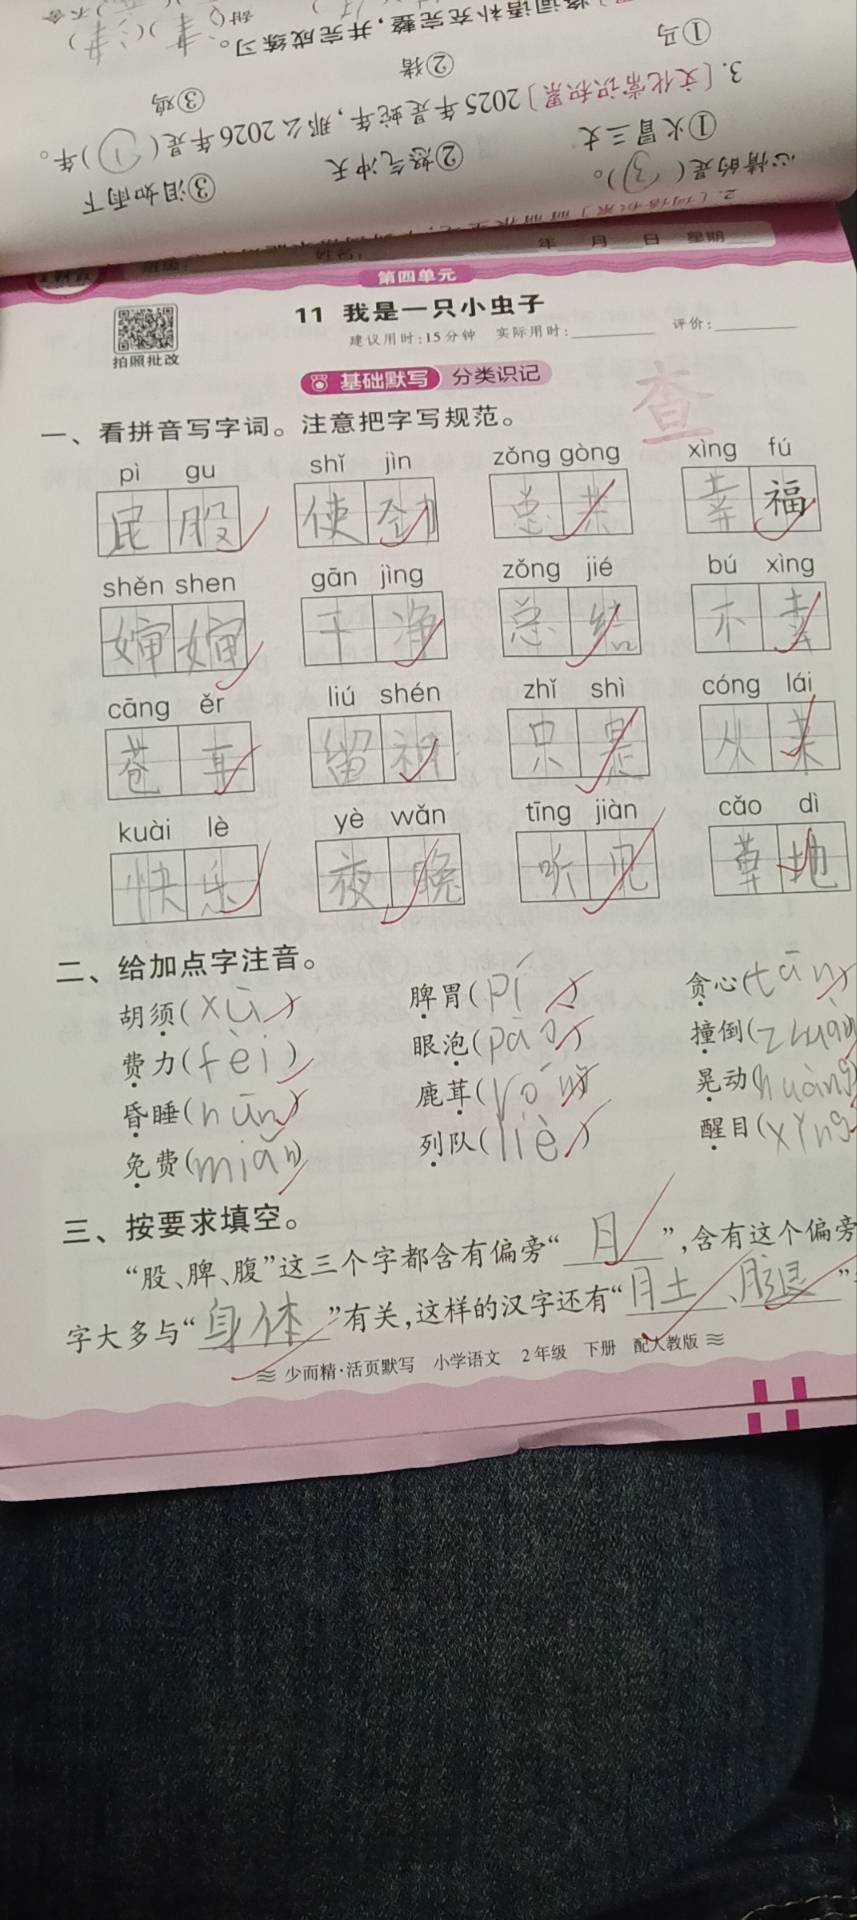 2.
心情的是(③)。
①火冒三丈 ②怒气冲天 ③泪如雨下
3.〔文化常识积累〕2025年是蛇年,那么2026年是(①)年。
①马 ②猪 ③鸡
补充完整,并完成练习。
年 月 日 星期
第四单元
11 我是一只小虫子
拍照批改
建议用时:15分钟 实际用时: 评价:
基础默写 分类识记
查
一、看拼音写字词。注意把字写规范。
pì gu shǐ jìn zǒng gòng xìng fú
屁股 使劲 总共 幸福
shěn shen gān jìng zǒng jié bú xìng
婶婶 干净 总结 不幸
cāng ěr liú shén zhǐ shì cóng lái
苍耳 留神 只是 从来
kuài lè yè wǎn tīng jiàn cǎo dì
快乐 夜晚 听见 草地
二、给加点字注音。
胡须(xū) 脾胃(pí) 贪心(tān)
费力(fèi) 眼泡(pāo) 撞倒(zhuàn
昏睡(hūn) 鹿茸(róng) 晃动(huàng)
免费(miǎn) 列队(liè) 醒目(xǐng
三、按要求填空。
“股、脾、腹”这三个字都含有偏旁“月”,含有这个偏旁
字大多与“身体”有关,这样的汉字还有“肚、腿”
少而精·活页默写 小学语文 2年级 下册 配人教版